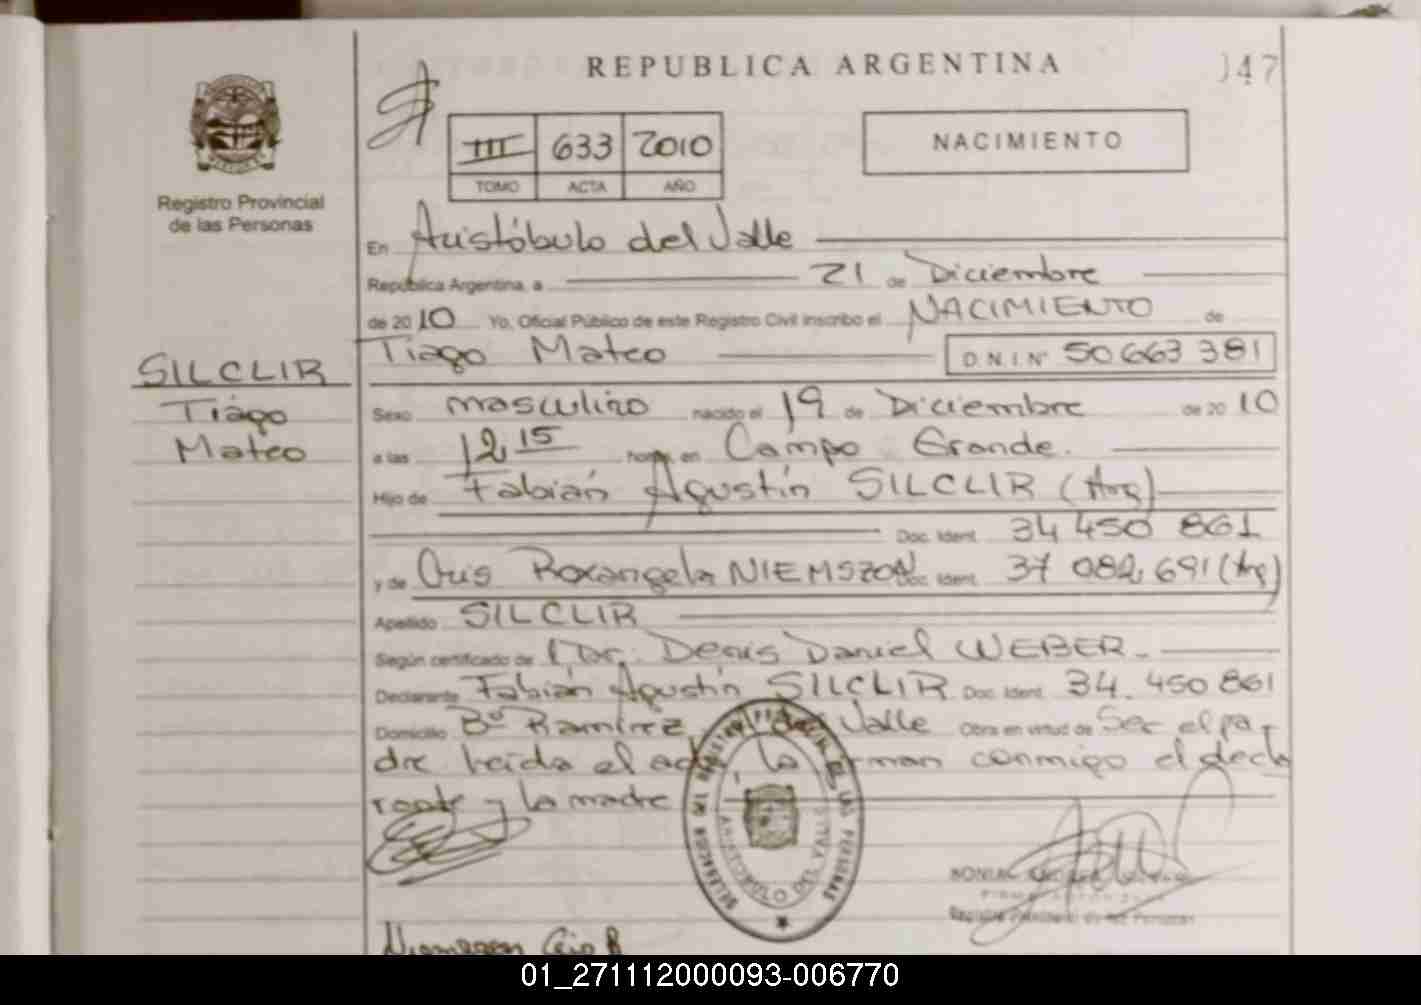 REPUBLICA ARGENTINA
147
III 633 2010
TOMO ACTA AÑO
NACIMIENTO
Registro Provincial
de las Personas
En Aristóbulo del Valle
República Argentina, a 21 de Diciembre
de 2010 Yo, Oficial Público de este Registro Civil inscribo el NACIMIENTO de
Tiago Mateo D.N.I. Nº 50 663 381
SILCLIR
Tiago
Mateo
Sexo masculino nacido el 19 de Diciembre de 2010
a las 12 15 horas en Campo Grande.
Hijo de Fabián Agustín SILCLIR (Arg)
Doc. Ident. 34 450 861
y de Roxangela NIEMSZON Doc. Ident. 37 082 691 (Arg)
Apellido SILCLIR
Según certificado de Dr. Denis Daniel WEBER
Declarante Fabián Agustín SILCLIR Doc. Ident. 34.450 861
Domicilio Bº Ramírez, Valle Obra en virtud de Ser el pa-
dre leída el acta, la firman conmigo el decla
rante y la madre
ARISTOBULO DEL VALLE
Registro Provincial de las Personas
01_271112000093-006770